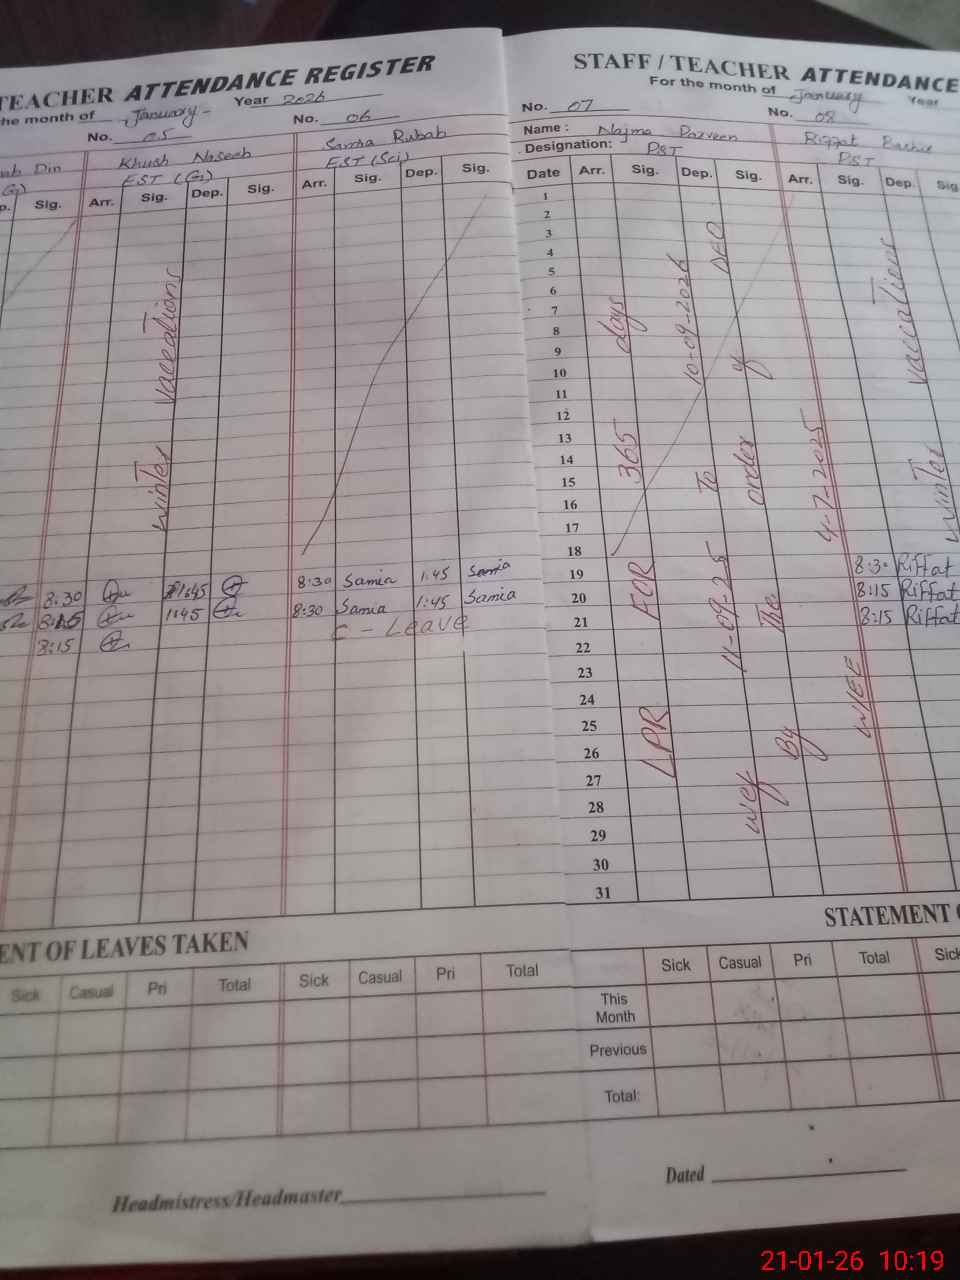 TEACHER ATTENDANCE REGISTER
the month of January Year 2026
No. 05 No. 06
Din Khush Naseeb Samia Rubab
EST (G) EST (Sci)
p. Sig. Arr. Sig. Dep. Sig. Arr. Sig. Dep. Sig.
winter vaccations
8:30 1:45 8:30 Samia 1:45 Samia
8:15 1:45 8:30 Samia 1:45 Samia
8:15 C - Leave
ENT OF LEAVES TAKEN
Sick Casual Pri Total Sick Casual Pri Total
Headmistress/Headmaster
STAFF / TEACHER ATTENDANCE
For the month of January Year
No. 07 No. 08
Name: Najma Parveen Riffat
Designation: PST PST
Date Arr. Sig. Dep. Sig. Arr. Sig. Dep. Sig
1
2
3
4
5
6
7
8
9
10
11
12
13
14
15
16
17
18
19 8:30 Riffat
20 8:15 Riffat
21 8:15 Riffat
22
23
24
25
26
27
28
29
30
31
LPR FOR 365 days
wef 11-09-25 To 10-09-2026
By The order of DEO
WEF 4-7-2025
winter vaccations
STATEMENT O
Sick Casual Pri Total Sick
This Month
Previous
Total:
Dated
21-01-26 10:19